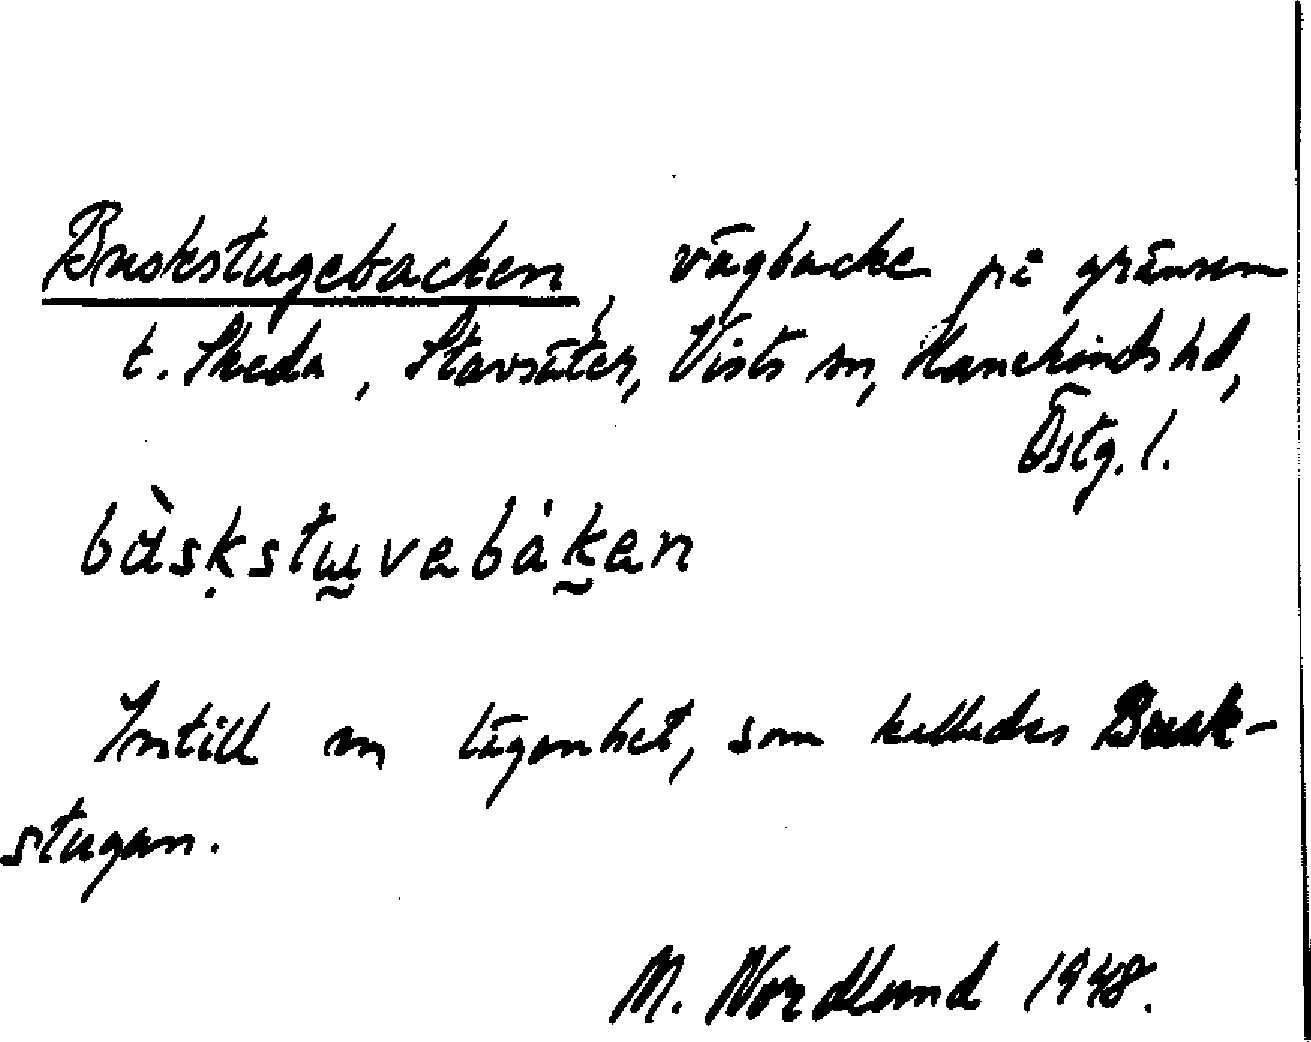 Buskstugebacken, vägbacke på gränsen
t. Skeda, Stavsäter, Vists sn, Hanekinds hd,
Östg. l.
bàskstu̯vebák̯en
Intill en lägenhet, som kallades Busk-
stugan.
M. Nordlund 1948.